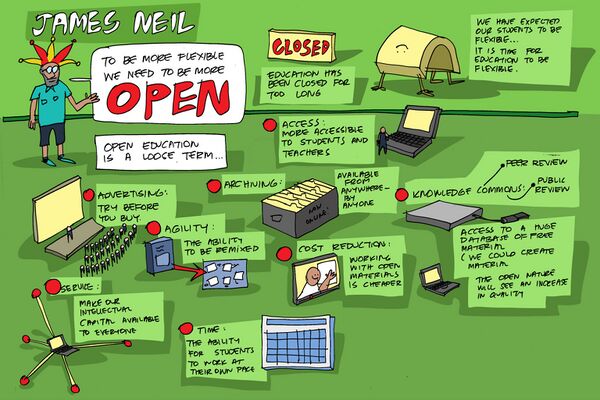 JAMES NEIL
TO BE MORE FLEXIBLE
WE NEED TO BE MORE
OPEN
OPEN EDUCATION
IS A LOOSE TERM...
CLOSED
EDUCATION HAS
BEEN CLOSED FOR
TOO LONG
WE HAVE EXPECTED
OUR STUDENTS TO BE
FLEXIBLE...
IT IS TIME FOR
EDUCATION TO BE
FLEXIBLE.
ACCESS:
MORE ACCESSIBLE
TO STUDENTS AND
TEACHERS
ADVERTISING:
TRY BEFORE
YOU BUY.
ARCHIVING:
AVAILABLE
FROM
ANYWHERE BY
ANYONE
KNOWLEDGE COMMONS:
PEER REVIEW
PUBLIC
REVIEW
ACCESS TO A HUGE
DATABASE OF FREE
MATERIAL
(WE COULD CREATE
MATERIAL
THE OPEN NATURE
WILL SEE AN INCREASE
IN QUALITY
AGILITY:
THE ABILITY
TO BE REMIXED
COST REDUCTION:
WORKING
WITH OPEN
MATERIALS IS
CHEAPER
SERVICE:
MAKE OUR
INTELLECTUAL
CAPITAL AVAILABLE
TO EVERYONE
TIME:
THE ABILITY
FOR STUDENTS
TO WORK AT
THEIR OWN PACE